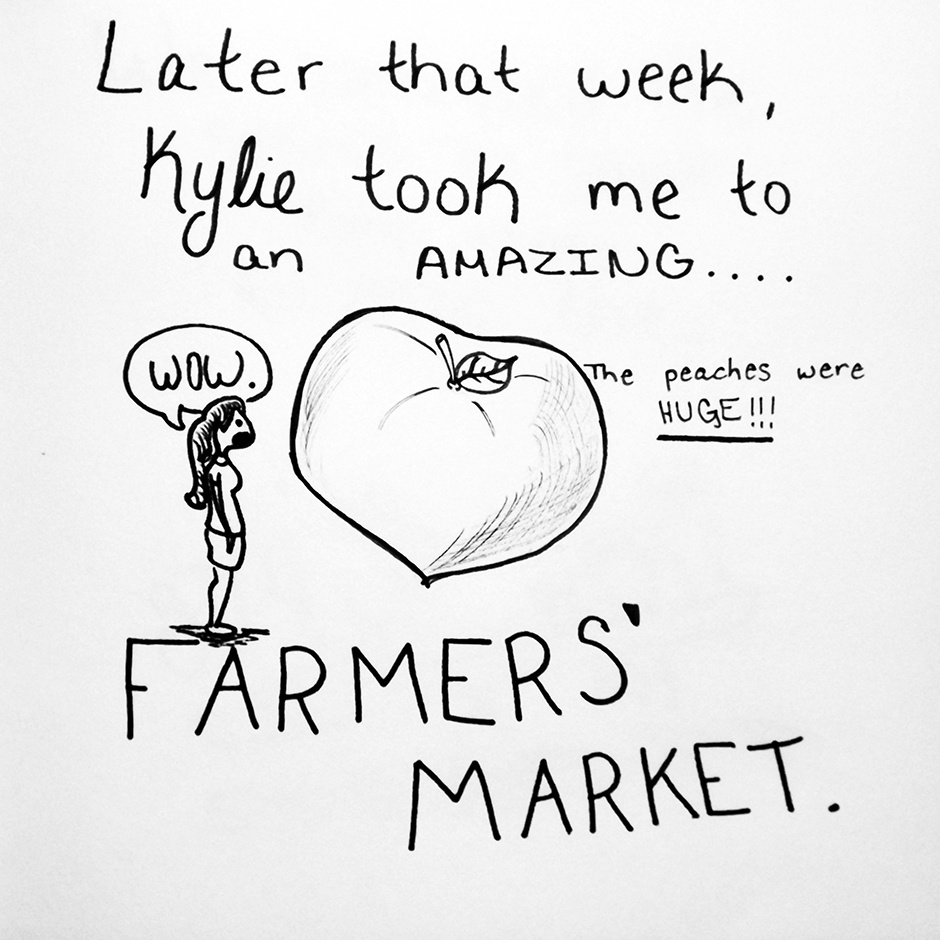 Later that week,
Kylie took me to
an AMAZING....
WOW.
The peaches were
HUGE!!!
FARMERS'
MARKET.